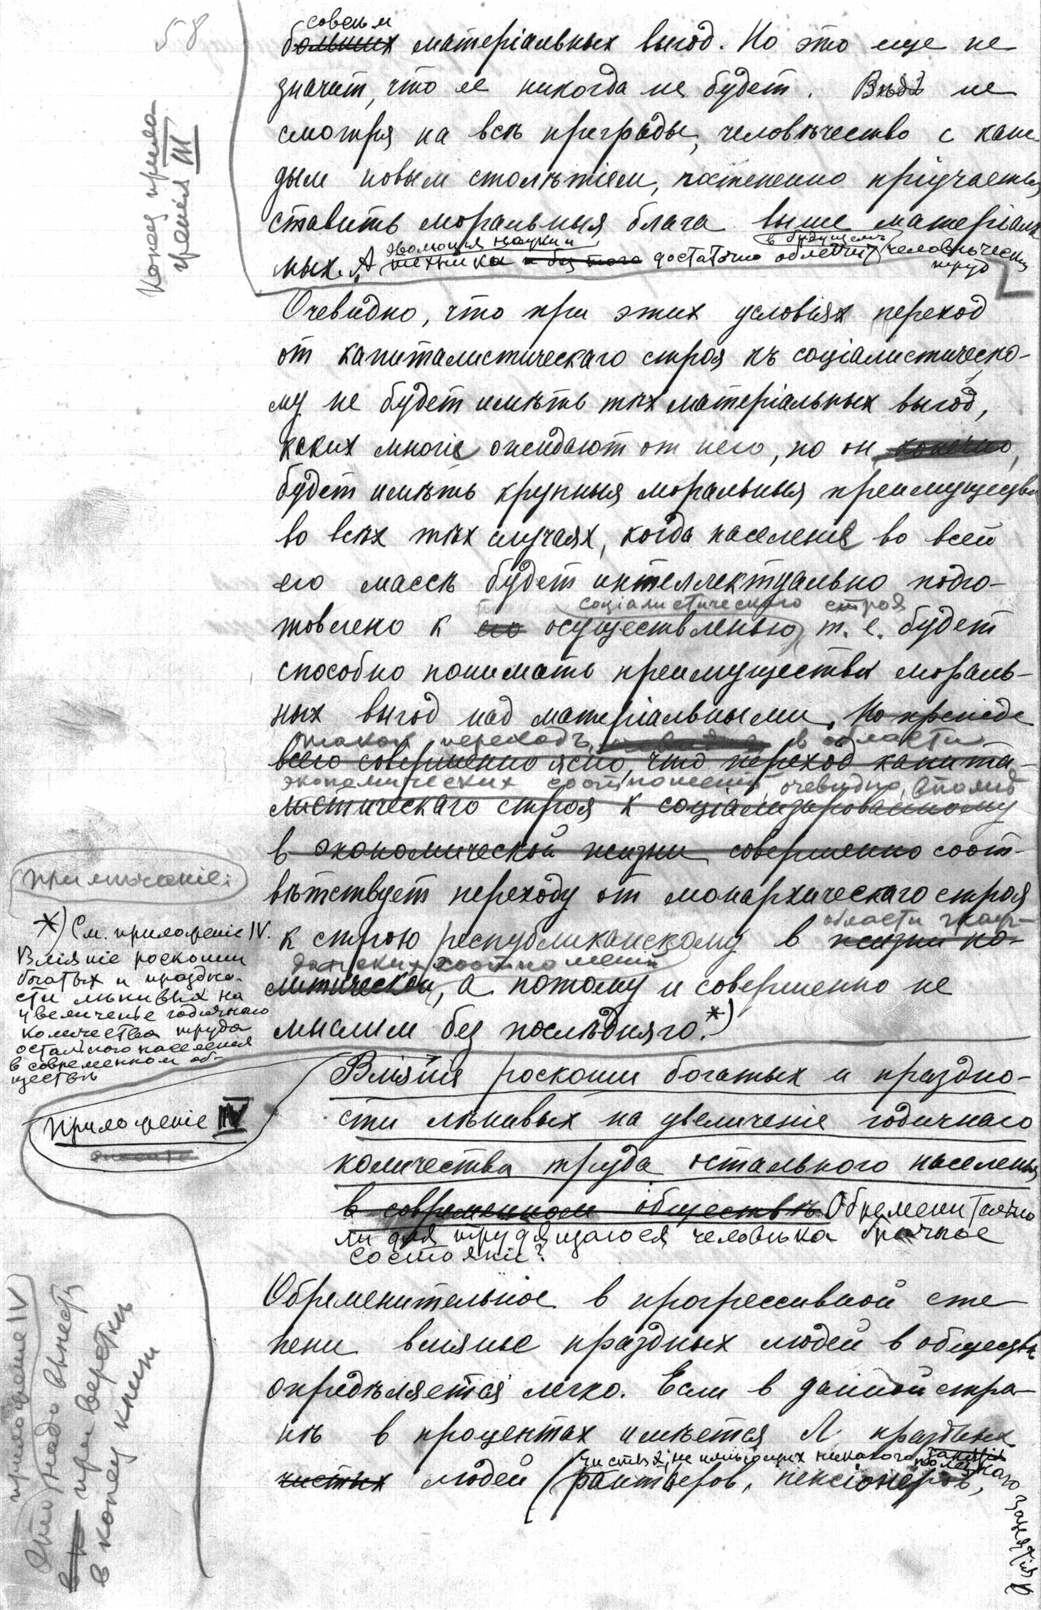 58
совсем
больших матеріальных выгод. Но это еще не
значит, что ее никогда не будет. Вѣдь не
смотря на всѣ преграды, человѣчество с каж
дым новым столѣтіем, постепенно пріучается
ставить моральныя блага выше матеріаль
эволюція науки и в будущем
ных. А техника и без того достаточно облегчит человѣческій
труд
Конец прило
женія III
Очевидно, что при этих условіях переход
от капиталистическаго строя къ соціалистическо-
му не будет имѣть тѣх матеріальных выгод,
каких многіе ожидают от него, но он конечно,
будет имѣть крупныя моральныя преимущества
во всѣх тѣх случаях, когда населеніе во всей
его массѣ будет интеллектуально подго-
соціалистическаго строя
товлено к его осуществленію, т. е. будет
способно понимать преимущества мораль-
ных выгод над матеріальными. Но прежде
такой переходъ в области
всего совершенно ясно что переход капита-
экономических соотношеній, очевидно, вполнѣ
листическаго строя к соціализированному
в экономической жизни совершенно соот-
вѣтствует переходу от монархическаго строя
области граж-
к строю республиканскому в жизни по-
данских соотношеній
литической, а потому и совершенно не
мыслим без послѣдняго.*)
примѣчаніе:
*) См. приложеніе IV.
Вліяніе роскоши
богатых и праздно-
сти лѣнивых на
увеличенье годичнаго
количества труда
остального населенія
в современном об-
ществѣ
Приложеніе IV
Вліянія роскоши богатых и праздно-
сти лѣнивых на увеличеніе годичнаго
количества труда остального населенія
в современном обществѣ Обременительно
ли для трудящагося человѣка брачное
состояніе?
Обременительное в прогрессивной сте
пени вліянье праздных людей в обществѣ
опредѣляется легко. Если в данной стра-
нѣ в процентах имѣется Л праздных
чистых, не имѣющих никакого полезнаго занятія
чистых людей (рантьеров, пенсіонеров,
приложение IV
Это надо вынести
при версткѣ
в конец книги